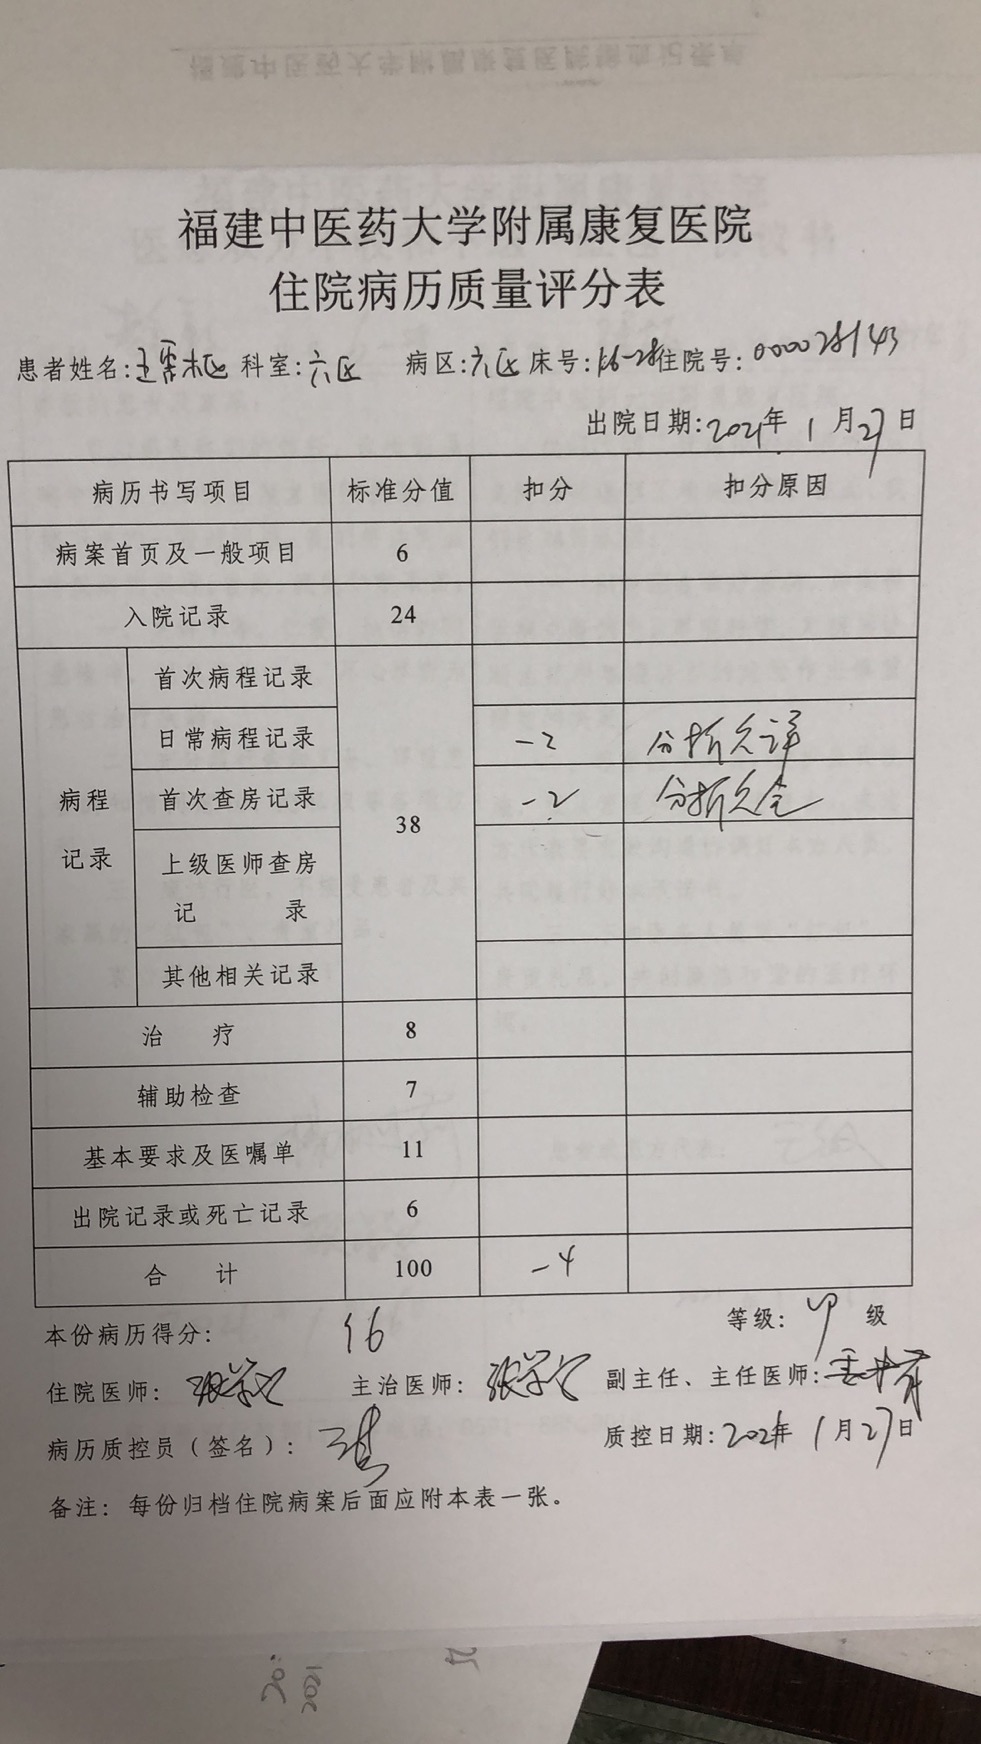 福建中医药大学附属康复医院
住院病历质量评分表
患者姓名: 科室:六区 病区:六区 床号:16-28 住院号:000028143
出院日期:2021年 1月27日
病历书写项目 标准分值 扣分 扣分原因
病案首页及一般项目 6
入院记录 24
病程记录 38
首次病程记录
日常病程记录 -2 分析欠详
首次查房记录 -2 分析欠全
上级医师查房记录
其他相关记录
治疗 8
辅助检查 7
基本要求及医嘱单 11
出院记录或死亡记录 6
合计 100 -4
本份病历得分: 96 等级:甲级
住院医师: 主治医师: 副主任、主任医师:
病历质控员（签名）: 质控日期:2021年 1月27日
备注: 每份归档住院病案后面应附本表一张。